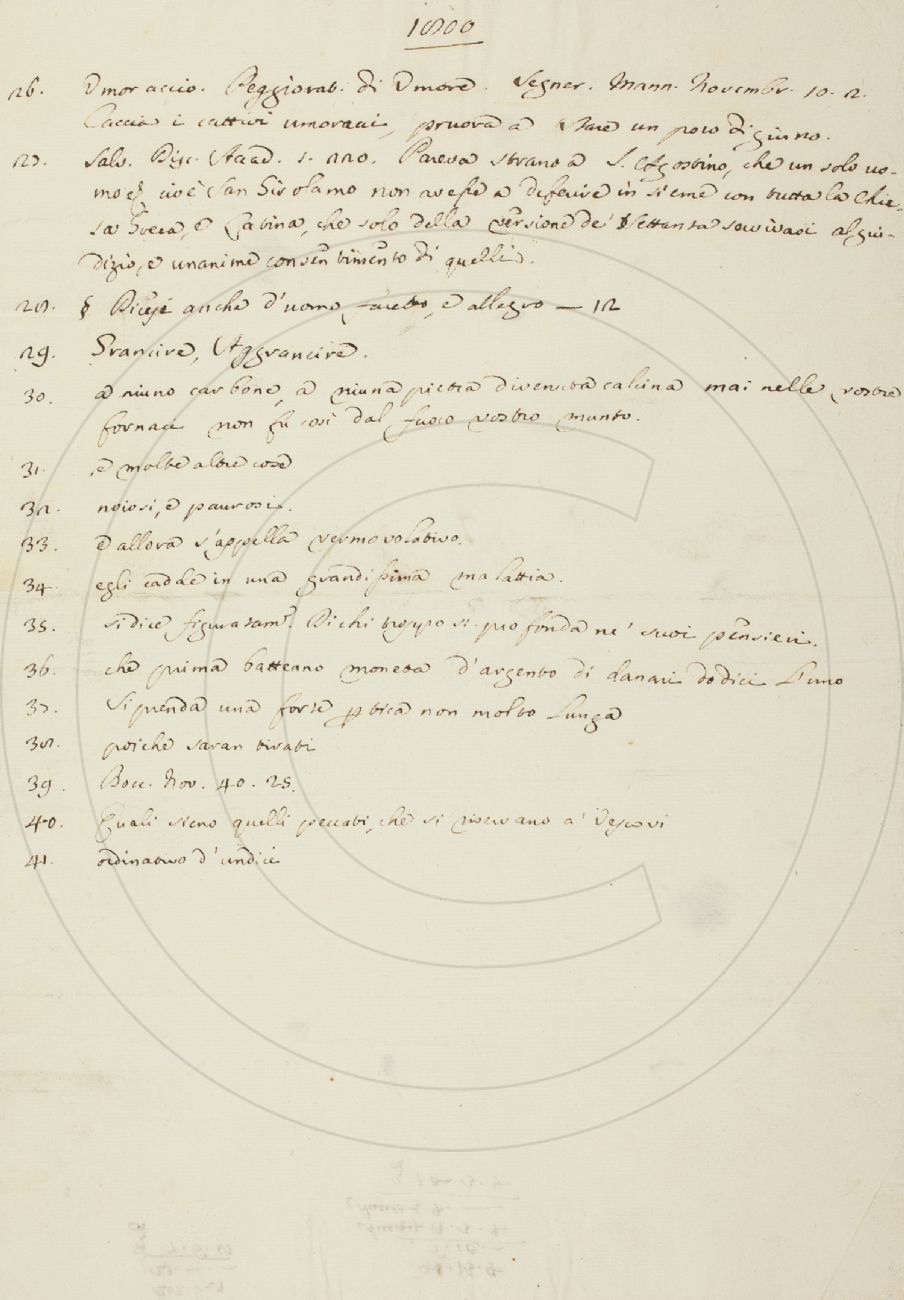 1800
26. Umoraccio. Peggiorat. di Umore. Segner. Mann. Novembr. 10. 2.
Caccia i cattivi umoracci, pruova a stare un poco digiuno.
27. Salv. Disc. Accad. 1. 220. Pareva strano a S. Agostino, che un solo uo-
mo cioè San Girolamo non avesse a deferire insieme con tutta la Chie-
sa Greca, e Latina, che solo della versione de' Settanta servivasi al giu-
dizio, e unanime consentimento di quelli.
28. § Dicesi anche d'uomo faceto, e allegro — 12
29. Grancire, Aggrancire.
30. a niuno carbone, a niuna pietra divenuta calcina mai nelle vostre
fornaci non fu così dal fuoco vostro munto.
31. e molte altre cose
32. noiosi, e paurosi.
33. e allora s'appella vermo volativo.
34. egli cadde in una grandissima malattia.
35. si dice figuratam. Di chi troppo si profonda ne' suoi pensieri.
36. che prima batteano moneta d'argento di danari dodici l'uno
37. Si prenda una forte pertica non molto lunga
38. poiche saran tirati
39. Bocc. Nov. 40. 25.
40. Quali sieno quelli peccati, che si riservano a' Vescovi
41. ordinativo d'undici